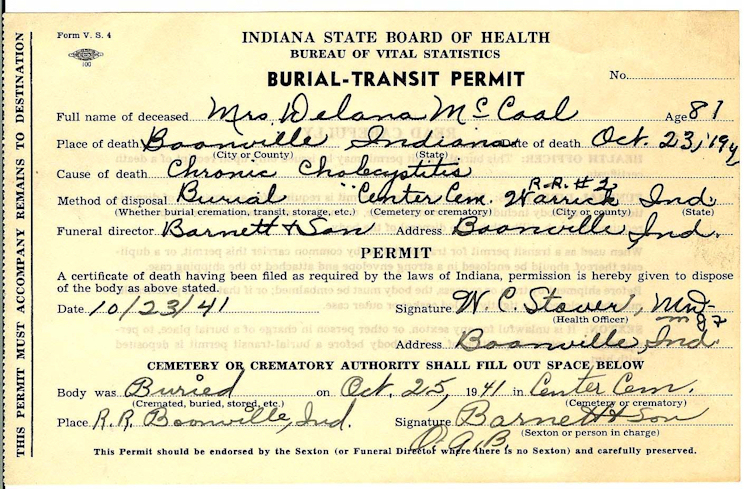 Form V. S. 4
100
INDIANA STATE BOARD OF HEALTH
BUREAU OF VITAL STATISTICS
BURIAL-TRANSIT PERMIT
No.
Full name of deceased Mrs. Delana McCool Age 81
Place of death Boonville Indiana Date of death Oct. 23, 194
(City or County) (State)
Cause of death Chronic Cholecystitis
R.R. #2
Method of disposal Burial Center Cem. Warrick Ind
(Whether burial cremation, transit, storage, etc.) (Cemetery or crematory) (City or county) (State)
Funeral director Barnett & Son Address Boonville, Ind.
PERMIT
A certificate of death having been filed as required by the laws of Indiana, permission is hereby given to dispose
of the body as above stated.
Date 10/23/41 Signature W. C. Stover,
(Health Officer)
Address Boonville, Ind
CEMETERY OR CREMATORY AUTHORITY SHALL FILL OUT SPACE BELOW
Body was Buried on Oct. 25, 1941 in Center Cem.
(Cremated, buried, stored, etc.) (Cemetery or crematory)
Place R.R. Boonville, Ind. Signature Barnett & Son
O.G.B. (Sexton or person in charge)
This Permit should be endorsed by the Sexton (or Funeral Director where there is no Sexton) and carefully preserved.
THIS PERMIT MUST ACCOMPANY REMAINS TO DESTINATION